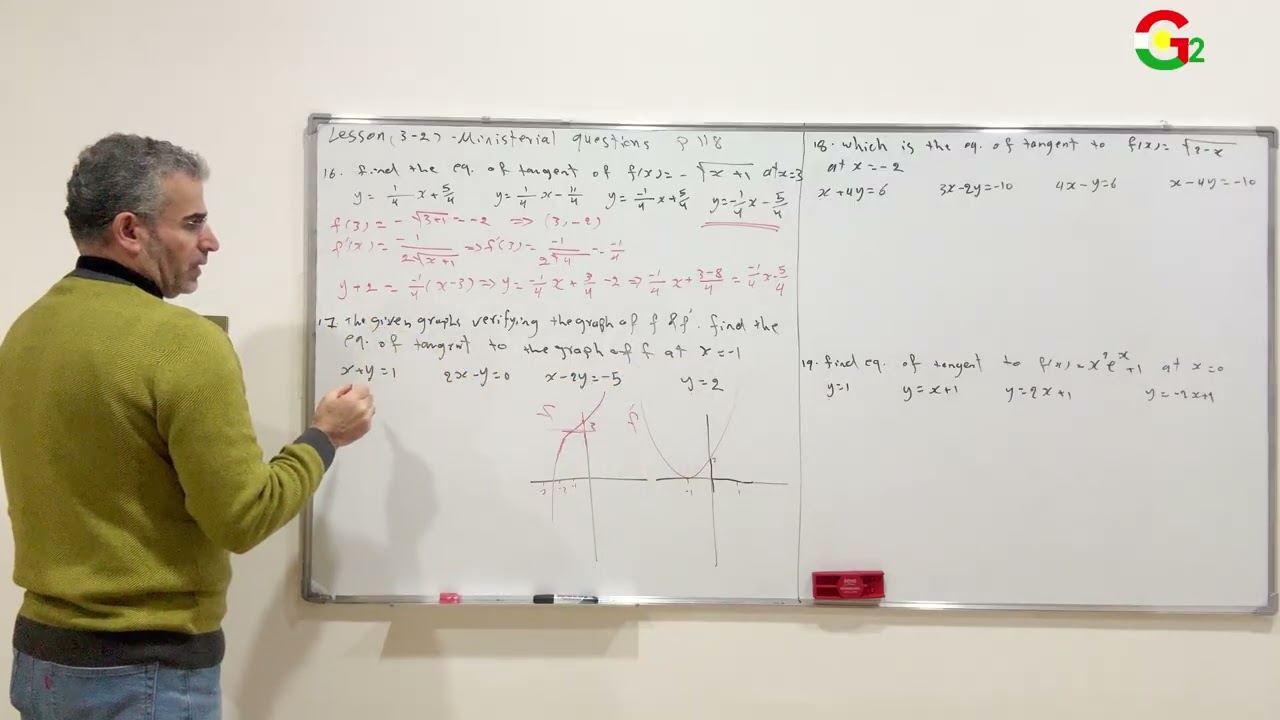 G2
Lesson (3-2) - Ministerial questions p 118
16. find the eq. of tangent of f(x) = -√x+1 at x=3
y = 1/4 x + 5/4 y = 1/4 x - 11/4 y = -1/4 x + 5/4 y = -1/4 x - 5/4
f(3) = -√3+1 = -2 => (3, -2)
f'(x) = -1/2√x+1 => f'(3) = -1/2√4 = -1/4
y+2 = -1/4 (x-3) => y = -1/4 x + 3/4 - 2 => -1/4 x + 3-8/4 = -1/4 x - 5/4
17. The given graphs verifying the graph of f & f'. find the
eq. of tangent to the graph of f at x = -1
x+y=1 2x-y=0 x-2y=-5 y=2
f 3 -2 -1
f' 2 -1 1
18. which is the eq. of tangent to f(x) = √2-x
at x = -2
x+4y=6 3x-2y=-10 4x-y=6 x-4y=-10
19. find eq. of tangent to at x=0
y=1 y=x+1 y=2x+1 y=-2x+1